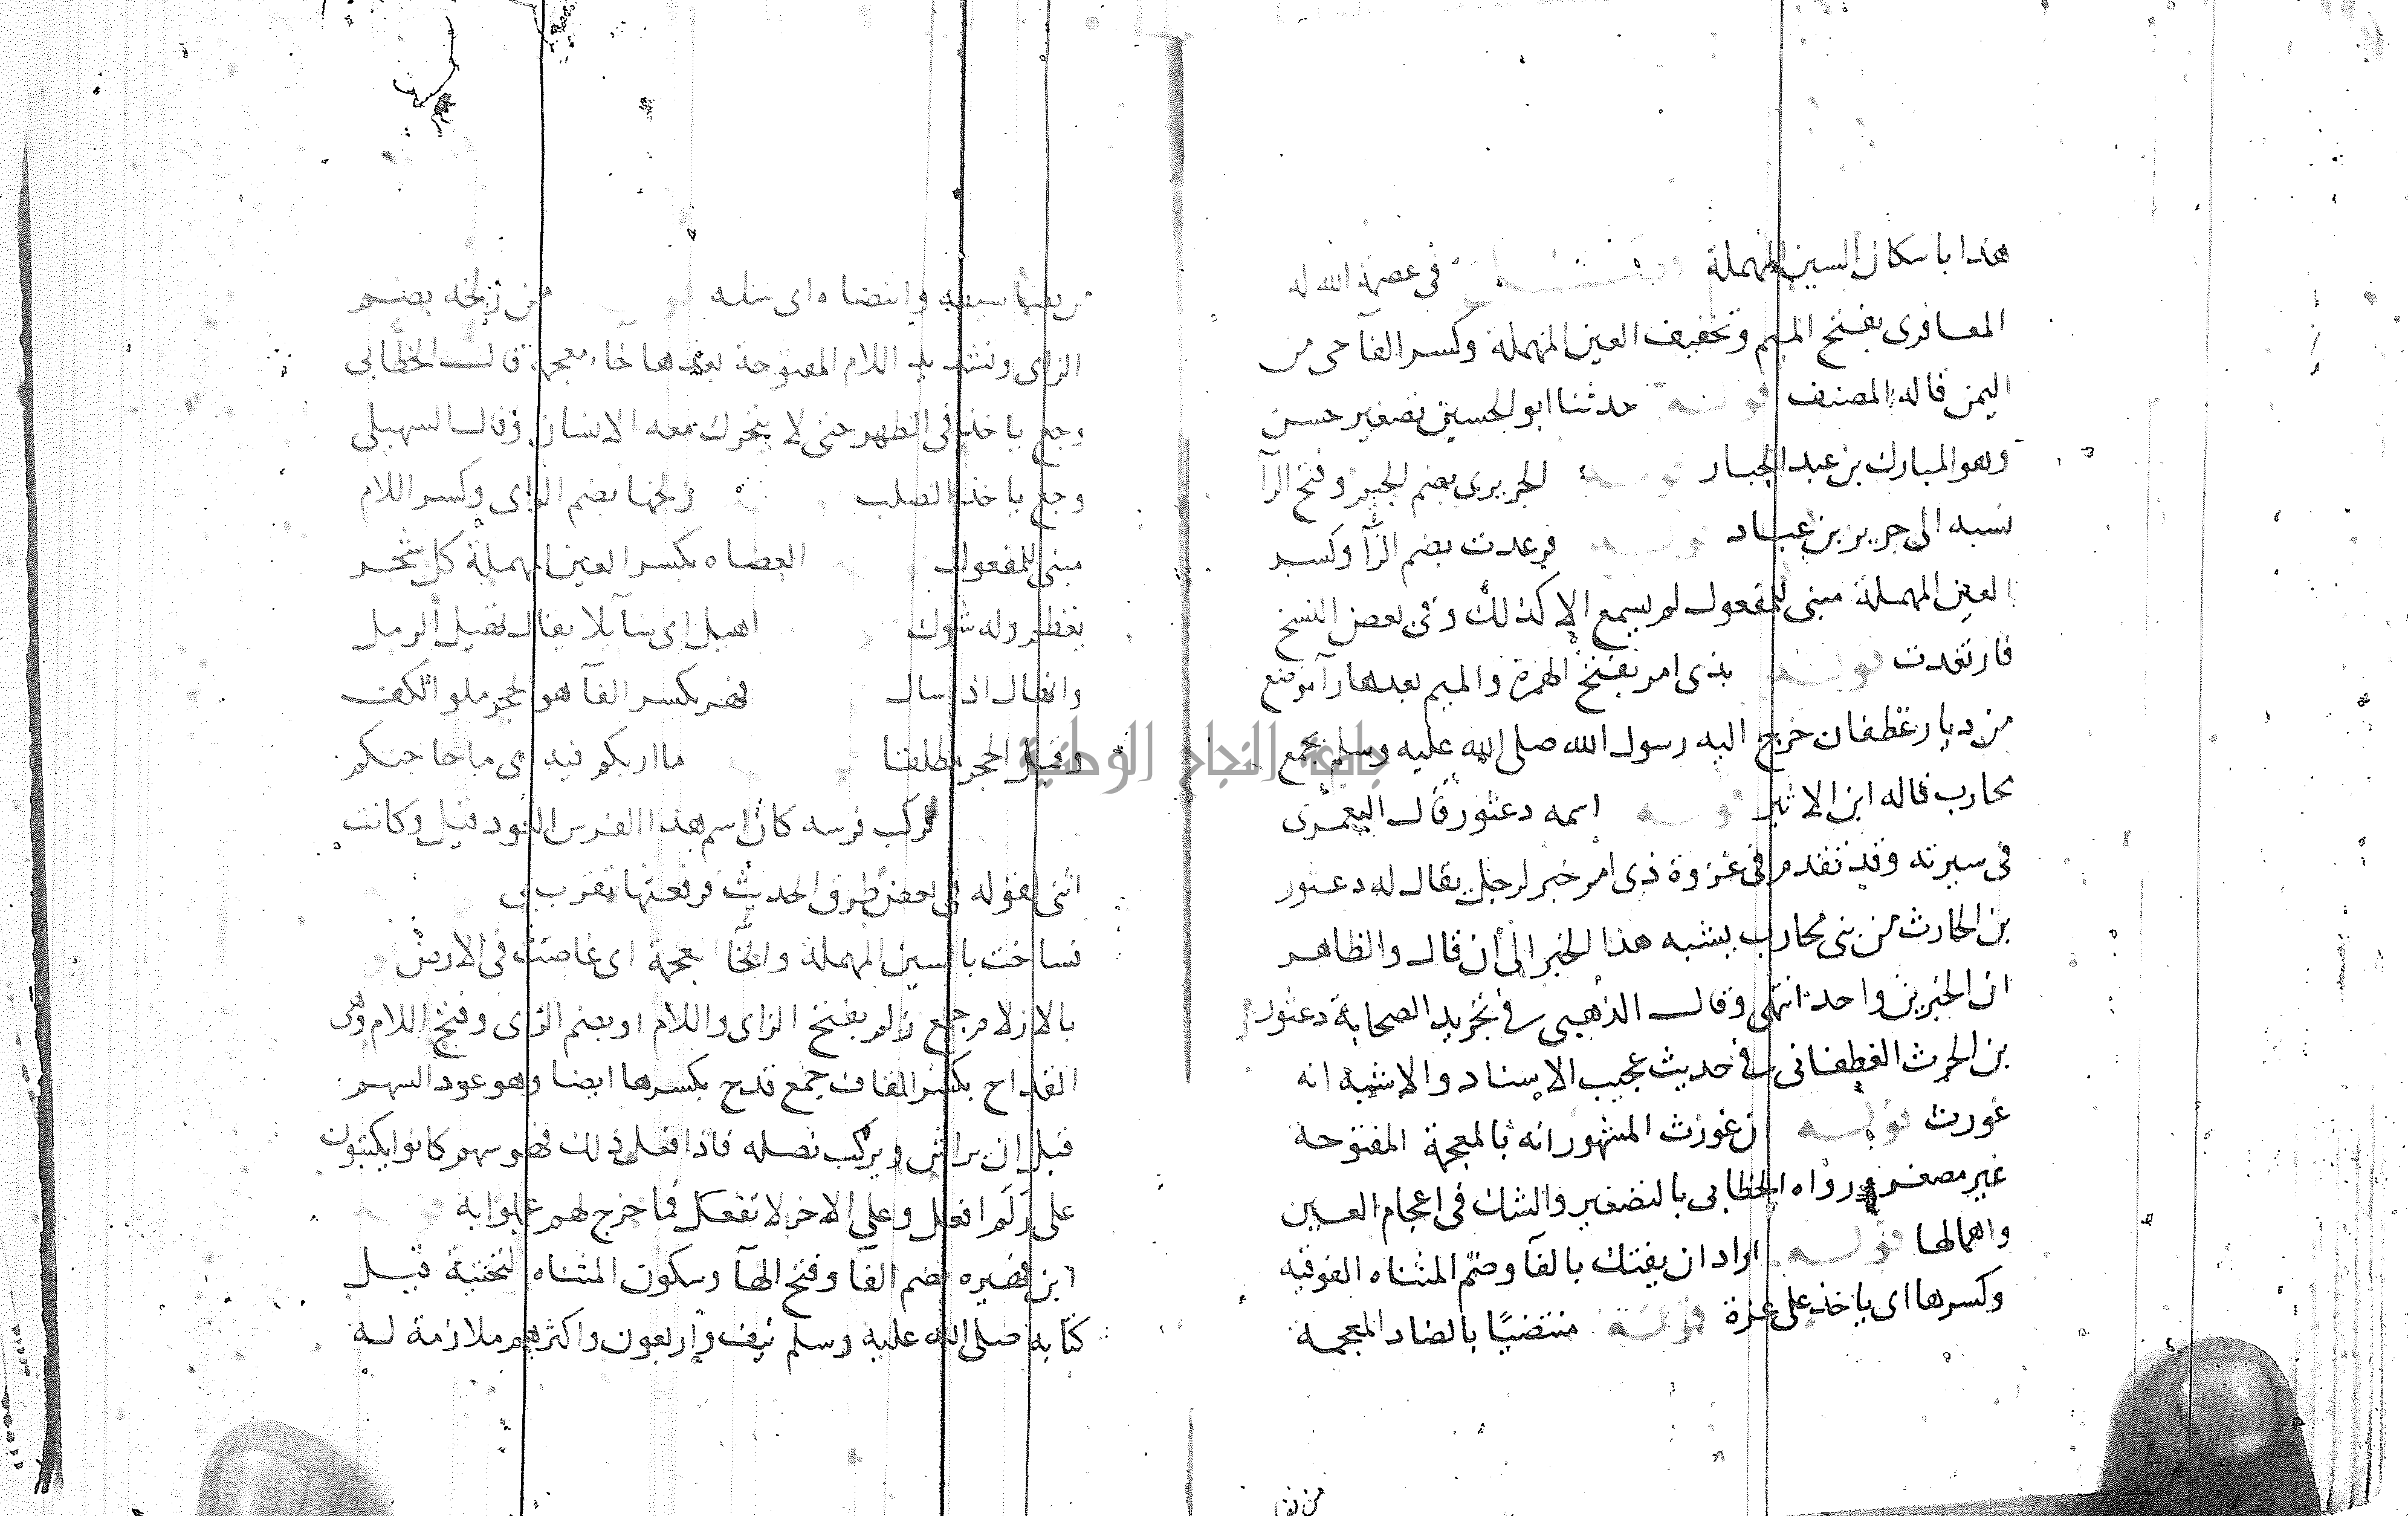 هذا باسكان السين المهملة في عصمة الله له
المعافري بفتح الميم وتخفيف العين المهملة وكسر الفآ حي من
اليمن قاله المصنف قولـه حدثنا ابو الحسين تصغير حسن
وهو المبارك بن عبد الجبار قولـه الجريري بضم الجيم وفتح الرآ
نسبه الى جرير بن عباد قولـه فرعدت بضم الرآ وكسر
العين المهملة مبني للمفعول لم يسمع الا كذلك وفي بعض النسخ
فارتعدت قولـه بذي امر بفتح الهمزة والميم بعدها رآ موضع
من ديار غطفان خرج اليه رسول الله صلى الله عليه وسلم بجمع
محارب قاله ابن الاثير قولـه اسمه دعثور قال اليعمري
في سيرته وقد تقدم في غزوة ذي امر خبر لرجل يقال له دعثور
بن الحارث من بني محارب يشبه هذا الخبر الى أن قال والظاهر
ان الخبرين واحد انتهى وقال الذهبي في تجريد الصحابة دعثور
بن الحرث الغطفاني في حديث عجيب الاسناد والاشبه انه
غورث قولـه ان غورث المشهور انه بالمعجمة المفتوحة
غير مصغر ورواه الخطابي بالتصغير والشك في اعجام العين
واهمالها قولـه اراد ان يفتك بالفآ وضم المثناه الفوقيه
وكسرها اي ياخذ على غرة قولـه منتضيًا بالضاد المعجمة
من نضا
من نضا سيفه وانتضاه اي سله من زلخه بضم
الزاي وتشديد اللام المفتوحة بعدها خاء معجمة قال الخطابي
وجع ياخذ في الظهر حتى لا يتحرك معه الانسان وقال السهيلي
وجع ياخذ الصلب زلخها بضم الزاي وكسر اللام
مبني للمفعول العضاه بكسر العين المهملة كل شجر
يعظم وله شوك اهيل اي سآيلا يقال تهيل الرمل
وانهال اذا سال فهر بكسر الفآ هو الحجر ملو الكف
وقيل الحجر مطلقا ما اربكم فيه اي ما حاجتكم
فركب فرسه كان اسم هذا الفرس العود قيل وكانت
انثى لقوله في بعض طرق الحديث فرفعتها تقرب بي
فساخت بالسين المهملة والخآ المعجمة اي غاصت في الارض
بالازلام جمع زلم بفتح الزاي واللام او بضم الزاي وفتح اللام وهي
القداح بكسر القاف جمع قدح بكسرها ايضا وهو عود السهم
قبل ان يراش ويركب نصله فاذا فعل ذلك فهو سهم كانوا يكتبون
على زلم افعل وعلي الاخر لا تفعل فما خرج لهم عملوا به
ابن فهيره بضم الفآ وفتح الهآ وسكون المثناه التحتية قيل
كتابه صلى الله عليه وسلم نيف واربعون واكثرهم ملازمة له
جامعة النجاح الوطنية